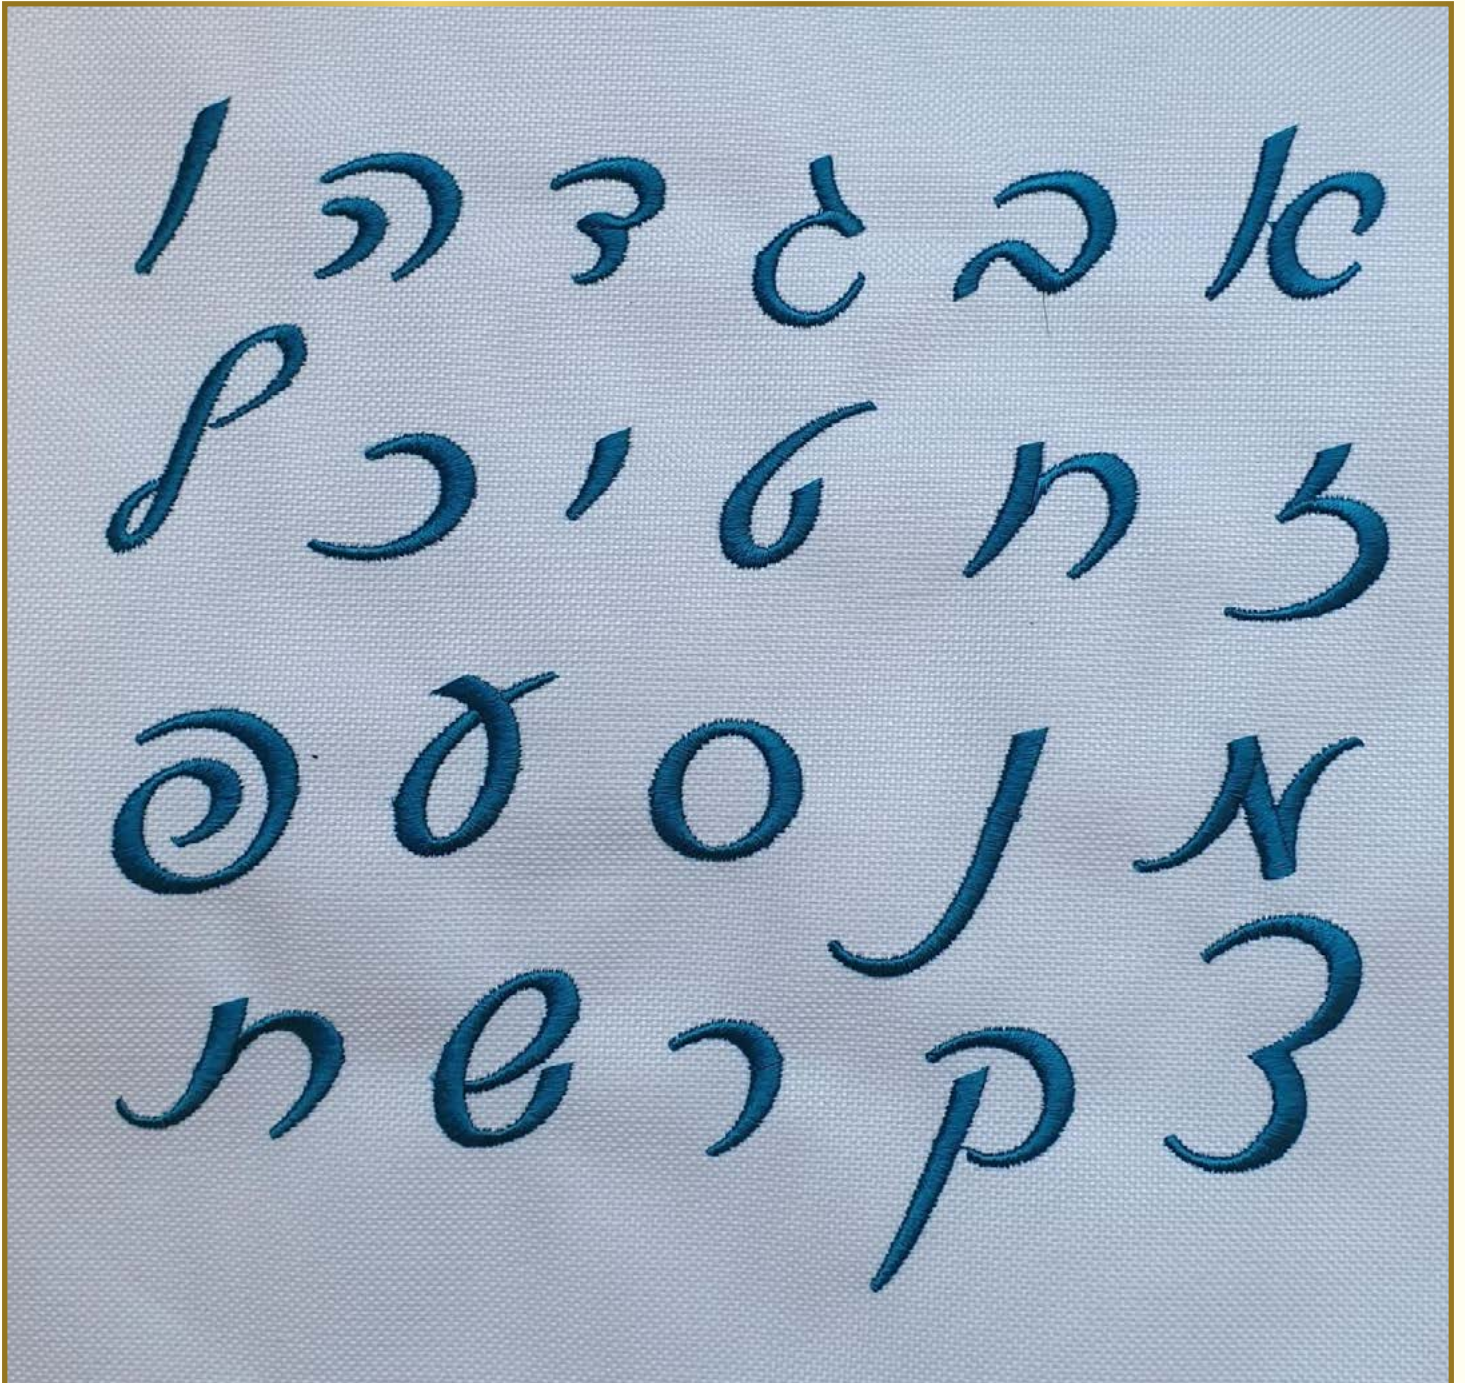 א ב ג ד ה ו
ז ח ט י כ ל
מ נ ס ע פ
צ ק ר ש ת